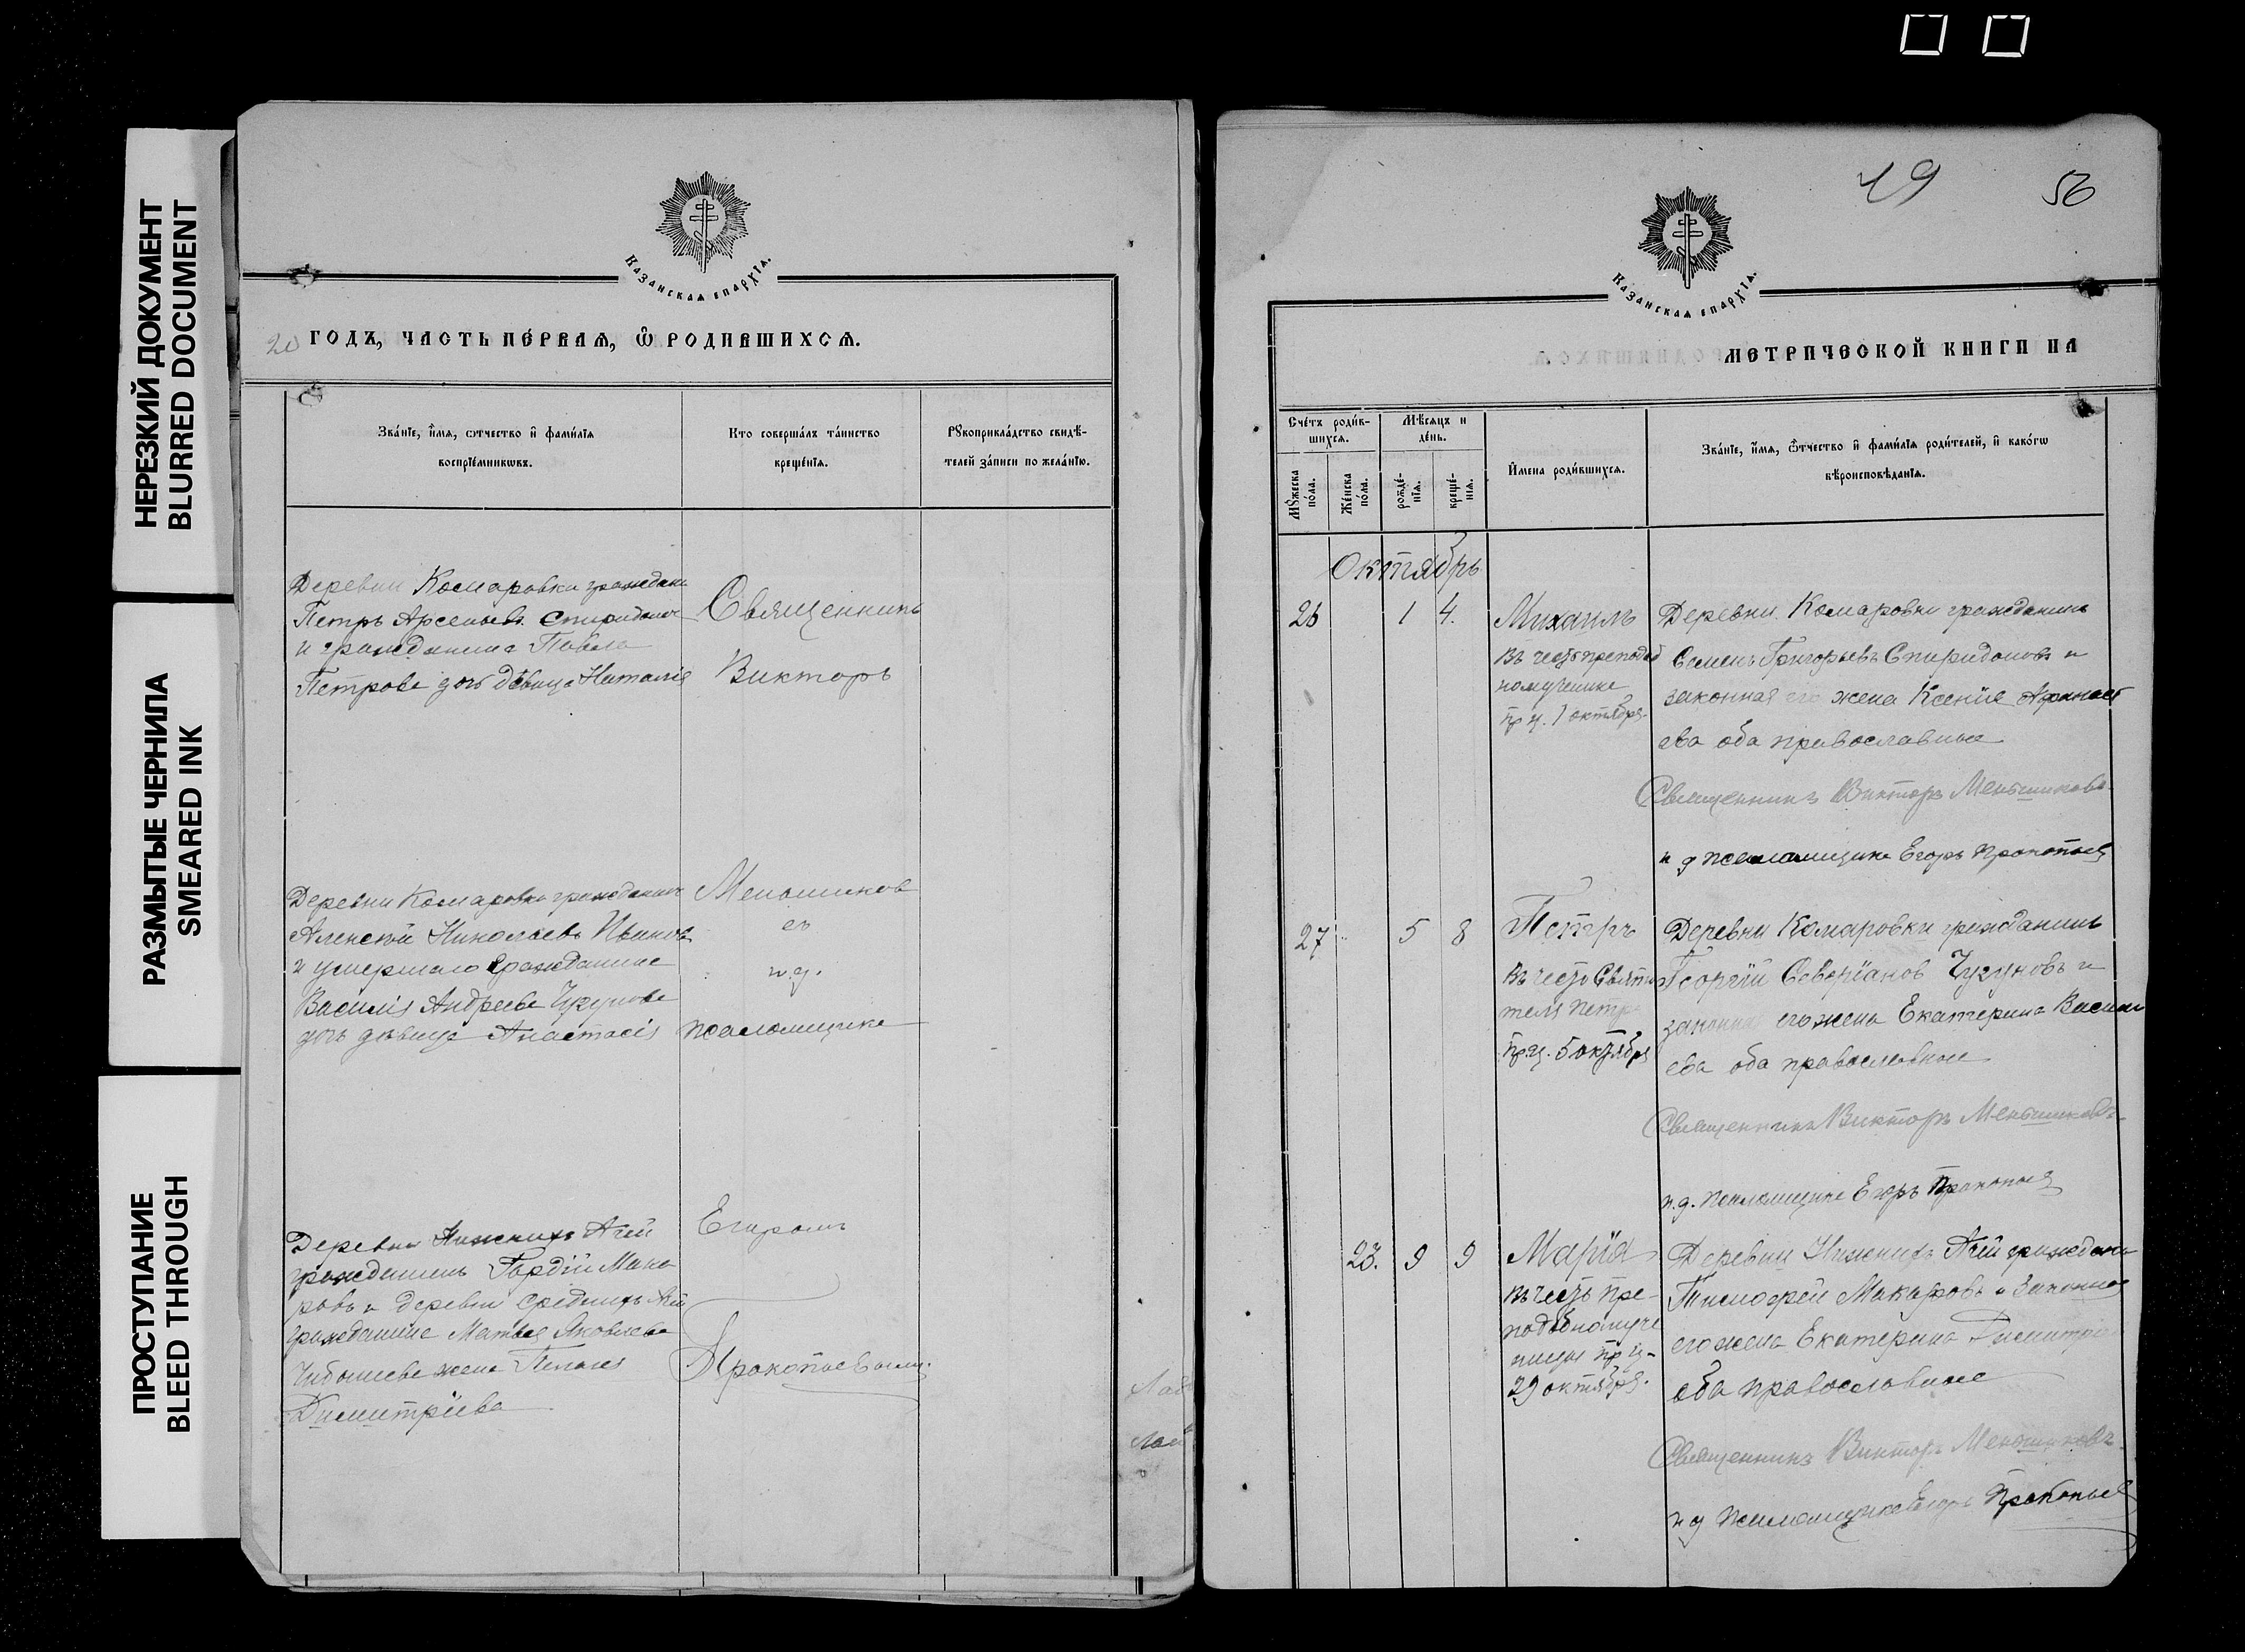 НЕРЕЗКИЙ ДОКУМЕНТ
BLURRED DOCUMENT
РАЗМЫТЫЕ ЧЕРНИЛА
SMEARED INK
ПРОСТУПАНИЕ
BLEED THROUGH
Казанская епархїя.
20 годъ, часть пе́рвая, ѡ҆ родившихся.
Зва́нїе, и҆́мя, ѻтчество и҆ фами́лїя
воспрїе́мниковъ.
Кто соверша́лъ та́инство
креще́нїя.
Рꙋкоприкла́дство свидѣ́-
телей за́писи по жела́нїю.
Деревни Комаровки граждани
Петръ Арсеньевъ Спиридонов
и гражданина Павла
Петрова дочь дѣвица Наталія
Священникъ
Викторъ
Деревни Комаровки гражданин
Алексѣй Николаевъ Иванов
и умершаго гражданина
Василія Андреева Чугунова
дочь дѣвица Анастасія
Меньшиков
съ
и.д.
псаломщика
Деревни Нижнихъ Ачей
гражданинъ Гордій Мака
ровъ и деревни Среднихъ Ачей
гражданина Матвея Яковлева
жена Пелагея
Димитріева
Егоромъ
Прокопьевымъ.
49 56
Казанская епархїя.
метрической книги на
Сче́тъ роди́в-
шихся.
Мѣ́сяцъ и
де́нь.
Мꙋ́жеска
по́ла.
Же́нска
по́ла.
рожде́-
нїя.
креще́-
нїя.
И҆мена роди́вшихся.
Зва́нїе, и҆́мя, ѻ҆́тчество и҆ фами́лїя роди́телей, и҆ како́гѡ
вѣроисповѣ́данїя.
Октябрь
26 1 4. Михаилъ
въ честь преподоб
номученика
пр ц. 1 октября.
Деревни Комаровки гражданинъ
Семенъ Григорьевъ Спиридоновъ и
законная его жена Ксенія Афанась
ева оба православные
Священникъ Викторъ Меньшиковъ.
и д псаломщика Егоръ Прокопьев
27 5 8 Петръ
въ честь Святи
теля Петр
пр.ц. 5 октября
Деревни Комаровки гражданинъ
Георгій Северіановъ Чугуновъ и
законная его жена Екатерина Василь
ева оба православные
Священникъ Викторъ Меньшиковъ
и.д. псаломщика Егоръ Прокопьев
23. 9 9 Марія
въ честь пре-
подобномуче
ницы пр ц-
29 октября.
Деревни Нижнихъ Ачей граждани
Тимофей Макаровъ и законная
его жена Екатерина Димитрі
оба православные
Священникъ Викторъ Меньшиковъ
и д псаломщика Егоръ Прокопьев